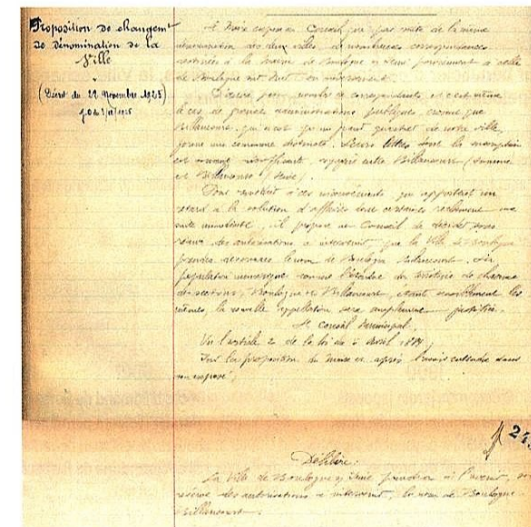 Proposition de changemt
de dénomination de la
Ville
(Décret du 22 Novembre 1925)
M Maire expose au Conseil que par suite de la même
dénomination des deux villes, de nombreuses correspondances
destinées à la Mairie de Boulogne s/ Seine parviennent à celle
de Boulogne sur Mer
D'autre part, nombre de correspondants et
de grandes administrations publiques, croient que
Billancourt, qui n'est qu'un quartier de notre ville,
forme une commune distincte. Leurs lettres dont la suscription
est Billancourt (Somme)
et Billancourt
Pour remédier à ces inconvénients qui apportent un
retard à la solution d'affaires dont certaines réclament une
suite immédiate, il propose au Conseil de décider sous
réserve des autorisations à intervenir que la Ville de Boulogne
prendra désormais le nom de Boulogne Billancourt. La
population comme l'étendue du territoire de chacune
des sections, Boulogne et Billancourt, étant sensiblement les
mêmes, la nouvelle appellation sera amplement justifiée.
Le Conseil Municipal,
Vu l'article 2 de la loi du 5 Avril 1884
Sur la proposition du Maire et après l'avoir entendu dans
son exposé,
Délibère:
La Ville de Boulogne s/ Seine prendra à l'avenir, sous
réserve des autorisations à intervenir, le nom de Boulogne
Billancourt.